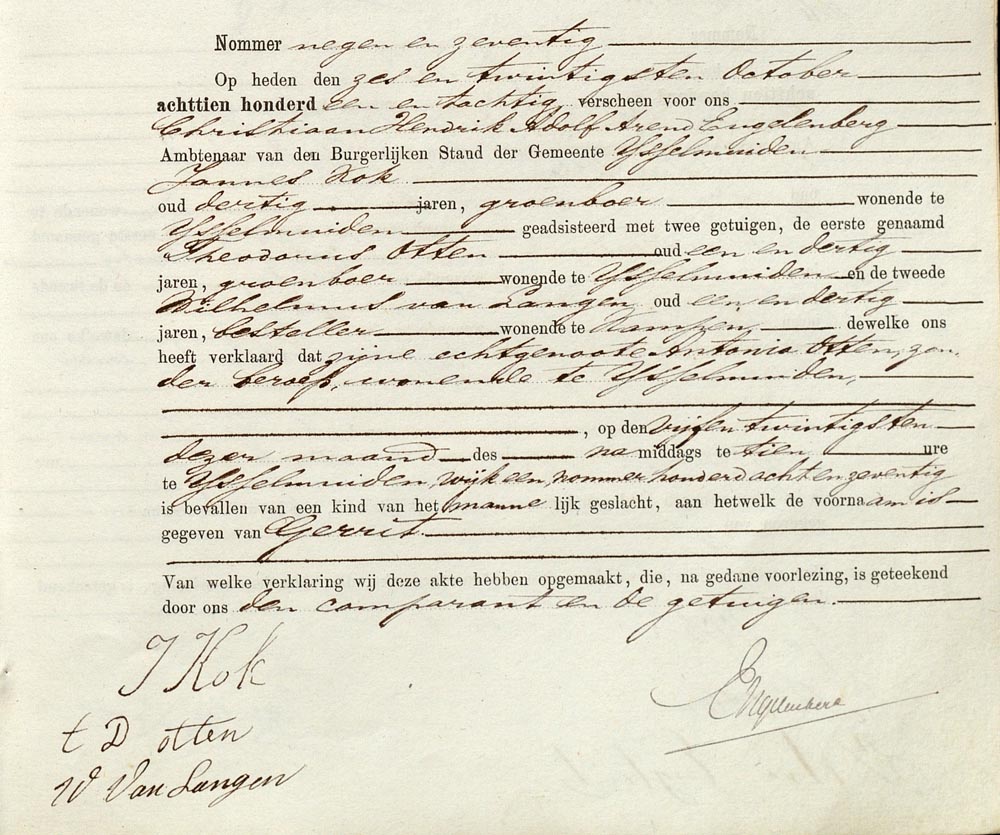 Nommer negen en zeventig
Op heden den zes en twintigsten October
achttien honderd een en tachtig, verscheen voor ons
Christiaan Hendrik Adolf Arend Engelenberg
Ambtenaar van den Burgerlijken Stand der Gemeente Ysselmuiden
Jannes Kok
oud dertig jaren, groenboer wonende te
Ysselmuiden geadsisteerd met twee getuigen, de eerste genaamd
Theodorus Otten oud een en dertig
jaren, groenboer wonende te Ysselmuiden en de tweede
Wilhelmus van Langen oud een en dertig
jaren, besteller wonende te Kampen, dewelke ons
heeft verklaard dat zijne echtgenoote Antonia Otten, zon,
der beroep, wonende te Ysselmuiden,
, op den vijf en twintigsten
dezer maand des na middags te tien ure
te Ysselmuiden, wijk een, nommer honderd acht en zeventig
is bevallen van een kind van het manne lijk geslacht, aan hetwelk de voornaam is
gegeven van Gerrit
Van welke verklaring wij deze akte hebben opgemaakt, die, na gedane voorlezing, is geteekend
door ons den comparant en de getuigen.
J Kok
Engelenberg
t D otten
W Van Langen